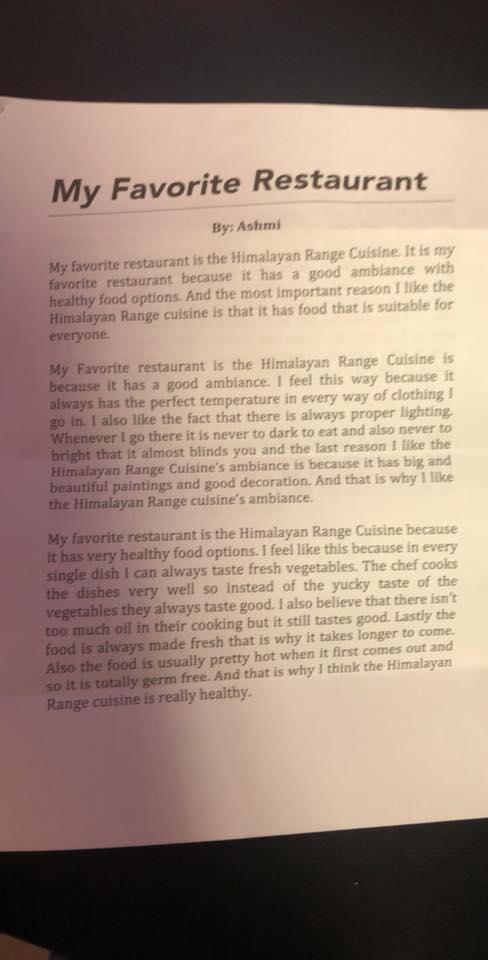 My Favorite Restaurant
By: Ashmi
My favorite restaurant is the Himalayan Range Cuisine. It is my
favorite restaurant because it has a good ambiance with
healthy food options. And the most important reason I like the
Himalayan Range cuisine is that it has food that is suitable for
everyone.
My Favorite restaurant is the Himalayan Range Cuisine is
because it has a good ambiance. I feel this way because it
always has the perfect temperature in every way of clothing I
go in. I also like the fact that there is always proper lighting.
Whenever I go there it is never to dark to eat and also never to
bright that it almost blinds you and the last reason I like the
Himalayan Range Cuisine's ambiance is because it has big and
beautiful paintings and good decoration. And that is why I like
the Himalayan Range cuisine's ambiance.
My favorite restaurant is the Himalayan Range Cuisine because
it has very healthy food options. I feel like this because in every
single dish I can always taste fresh vegetables. The chef cooks
the dishes very well so instead of the yucky taste of the
vegetables they always taste good. I also believe that there isn't
too much oil in their cooking but it still tastes good. Lastly the
food is always made fresh that is why it takes longer to come.
Also the food is usually pretty hot when it first comes out and
so it is totally germ free. And that is why I think the Himalayan
Range cuisine is really healthy.